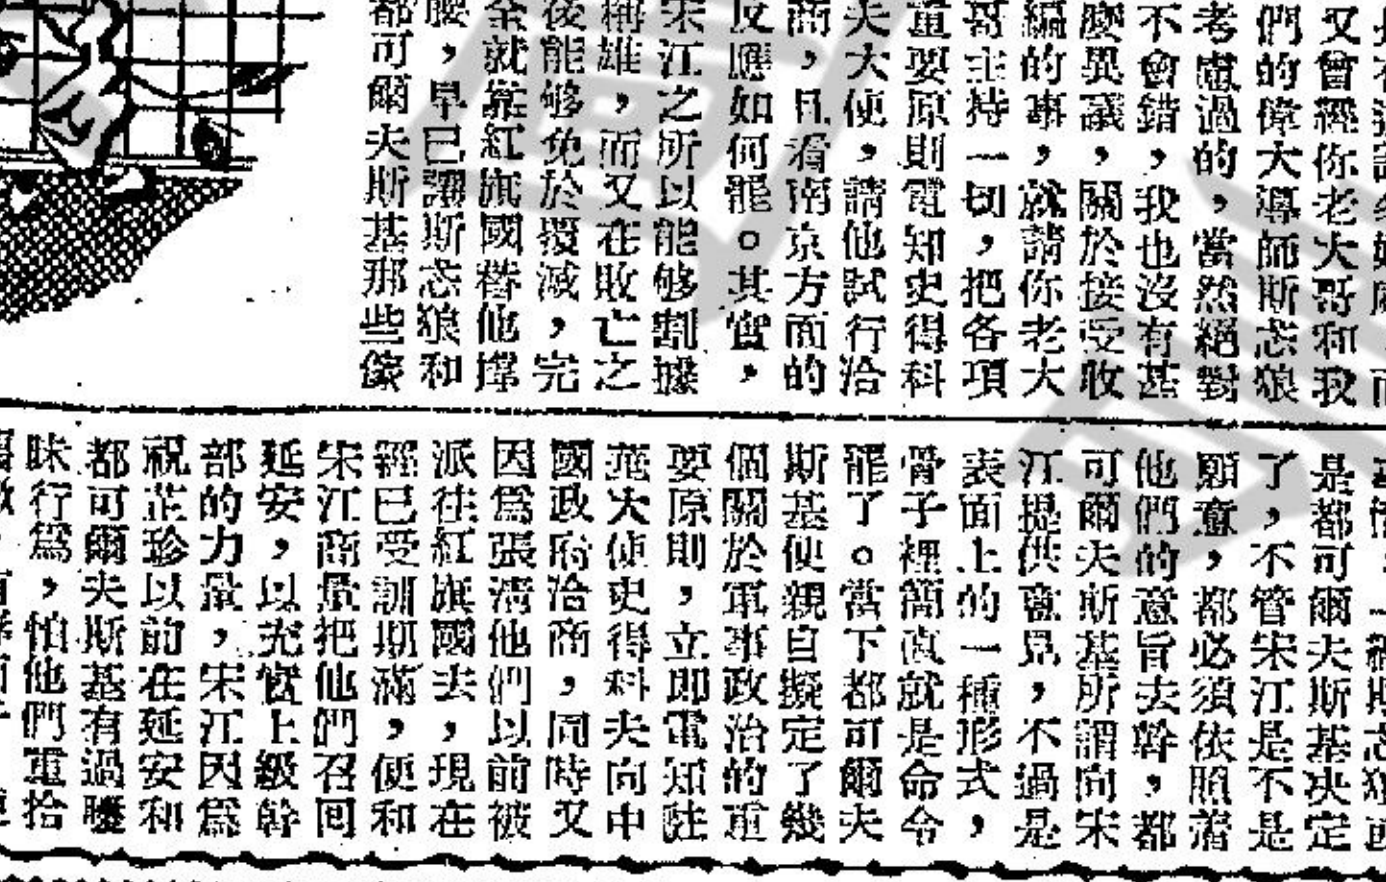 又曾經你老大哥和我
們的偉大導師斯忒狼
考慮過的,當然絕對
不會錯,我也沒有甚
麼異議,關於接受收
編的事,就請你老大
哥主持一切,把各項
重要原則電知史得科
夫大使,請他試行洽
商,且看南京方面的
反應如何罷。其實,
宋江之所以能够割據
稱雄,而又在敗亡之
後能够免於覆滅,完
全就靠紅旗國替他撑
腰,早已讓斯忒狼和
都可爾夫斯基那些傢
是都可爾夫斯基决定
了,不管宋江是不是
願意,都必須依照着
他們的意旨去幹,都
可爾夫斯基所謂向宋
江提供意見,不過是
表面上的一種形式,
骨子裡簡直就是命令
罷了。當下都可爾夫
斯基便親自擬定了幾
個關於軍事政治的重
要原則,立即電知駐
大使史得科夫向中
國政府洽商,同時又
因為張清他們以前被
派往紅旗國去,現在
經已受訓期滿,便和
宋江商量把他們召回
延安,以充實上級幹
部的力量,宋江因為
祝芷珍以前在延安和
都可爾夫斯基有過曖
昧行為,怕他們重拾